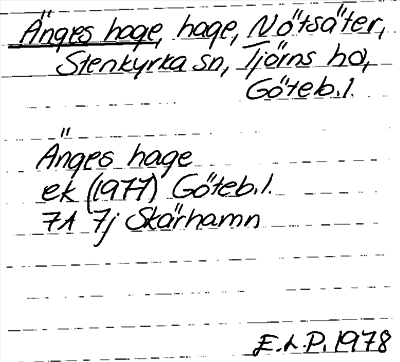 Änges hage, hage, Nötsäter,
Stenkyrka sn, Tjörns hd,
Göteb. l.
Änges hage
ek (1977) Göteb. l.
7A 7j Skärhamn
E.L.P. 1978